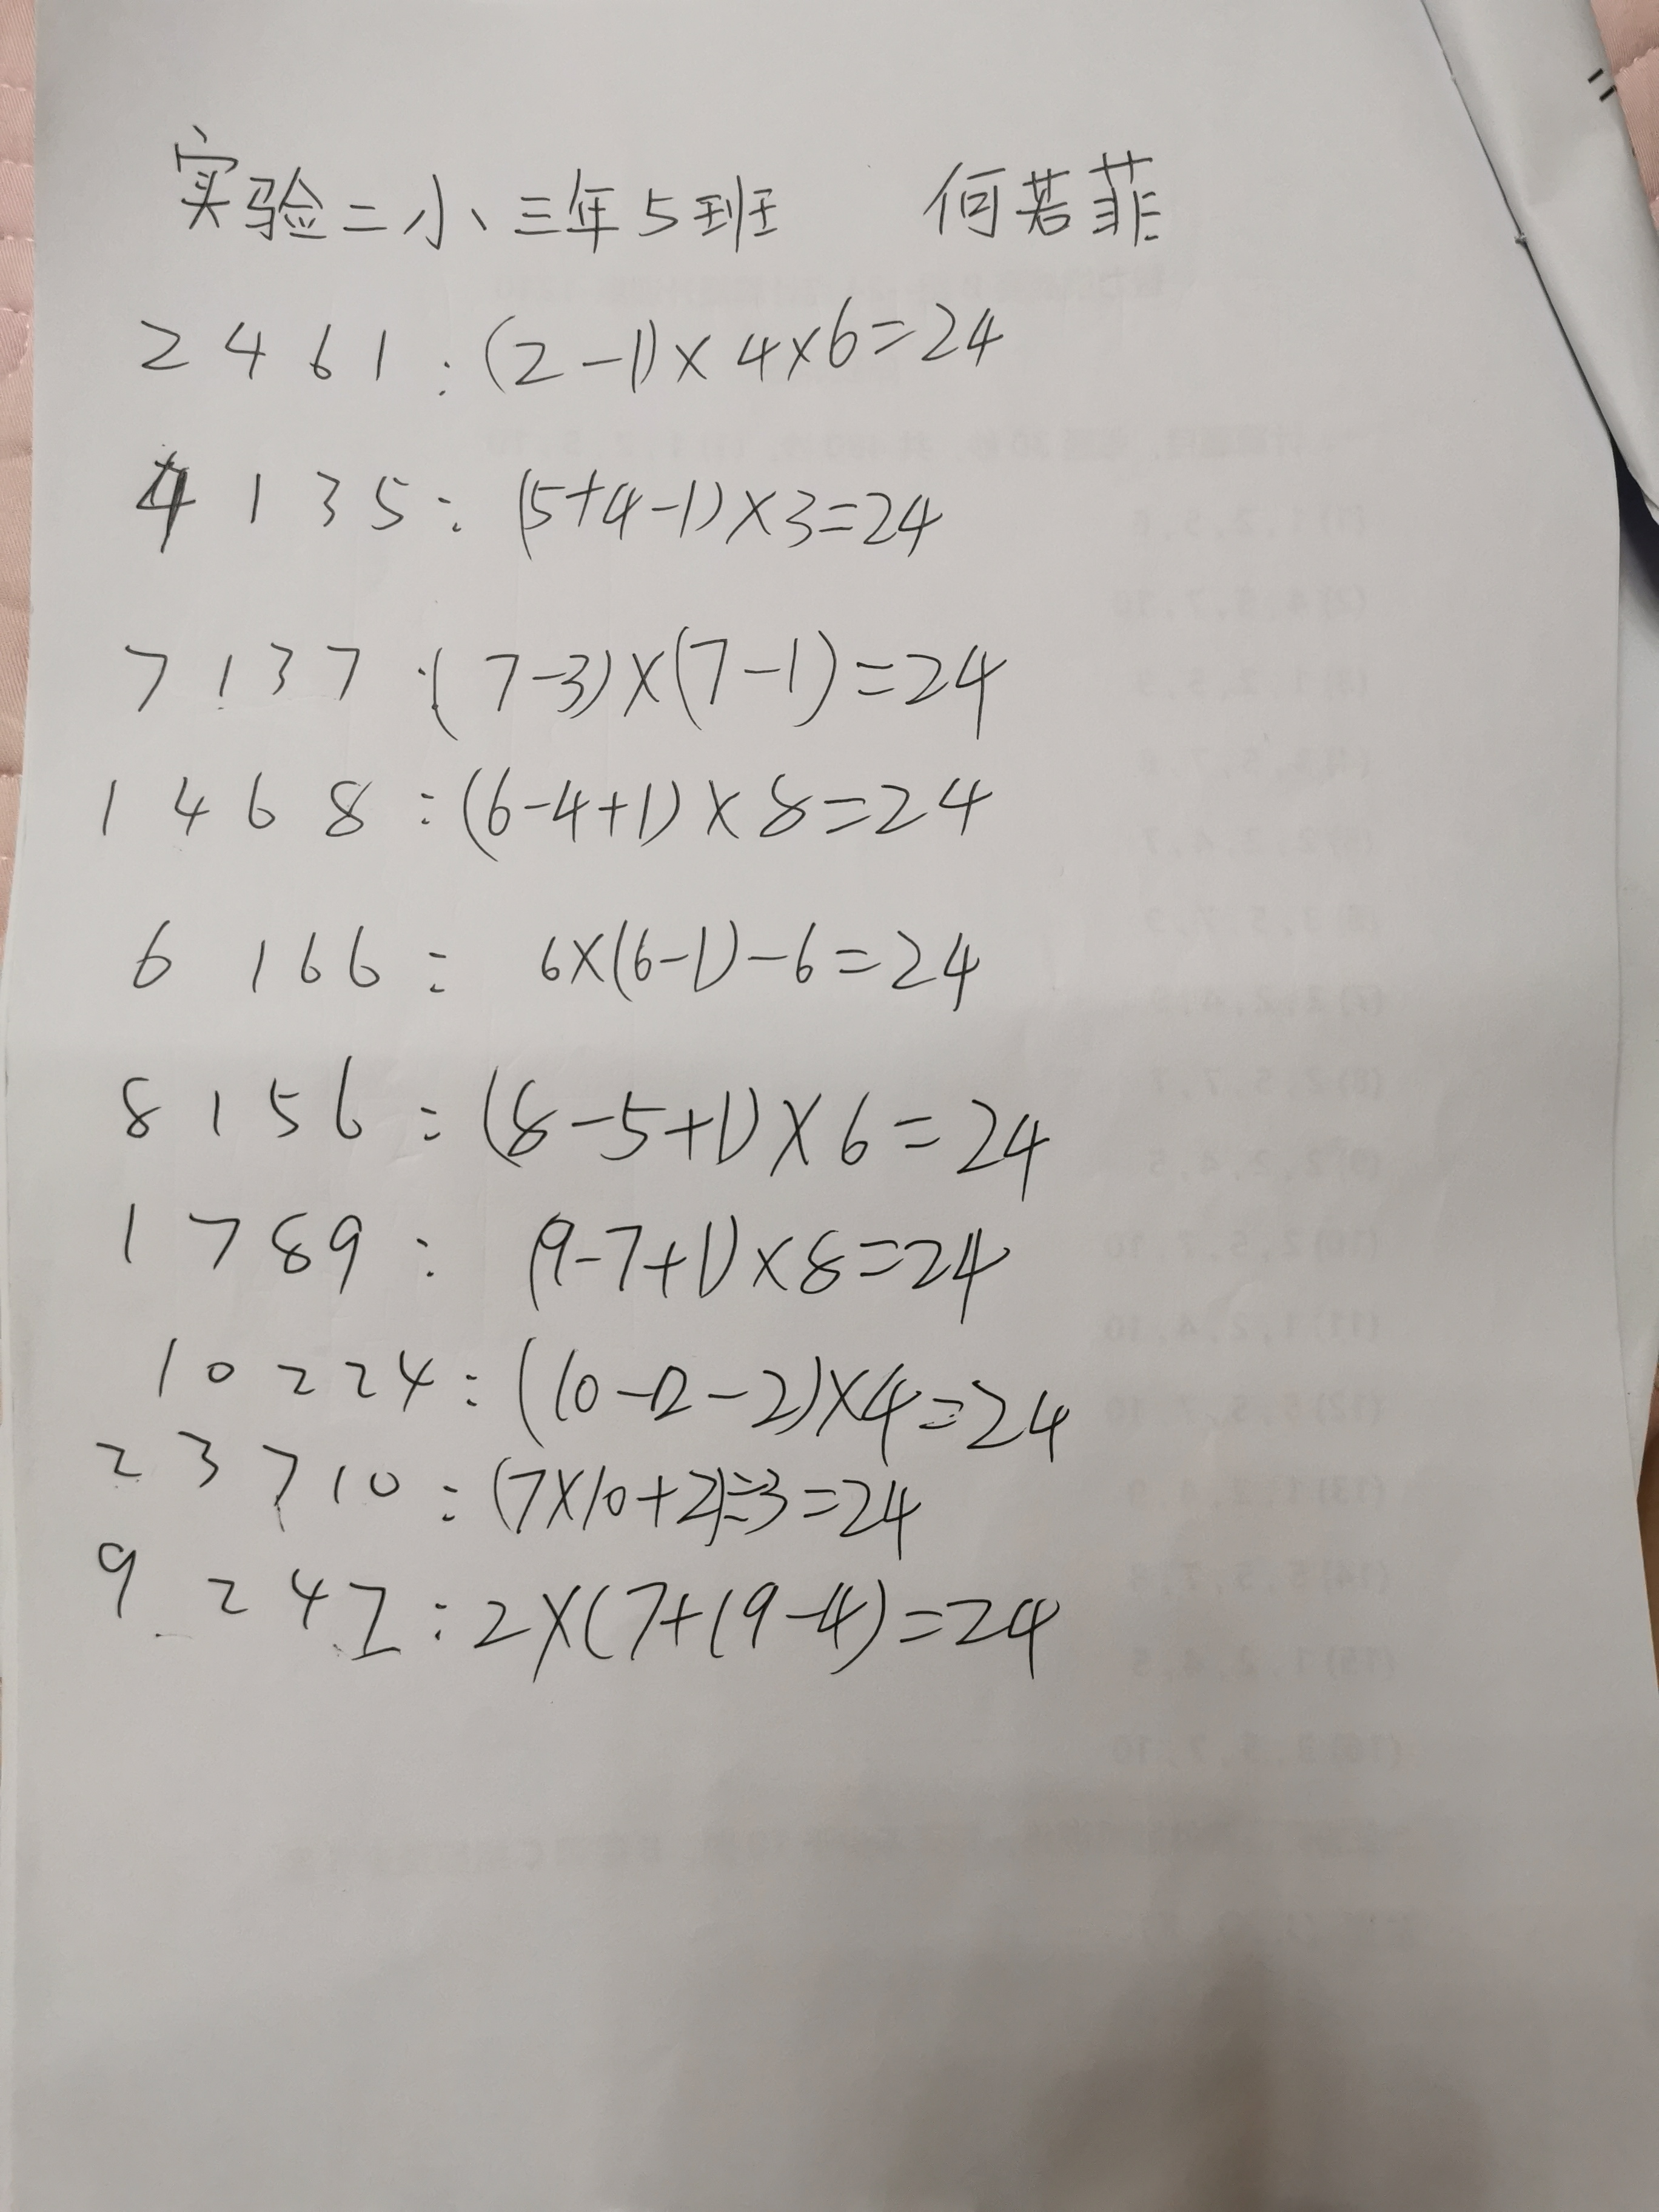 实验二小三年5班 何若菲
2 4 6 1 : (2-1)×4×6=24
4 1 3 5 : (5+4-1)×3=24
7 1 3 7 : (7-3)×(7-1)=24
1 4 6 8 : (6-4+1)×8=24
6 1 6 6 : 6×(6-1)-6=24
8 1 5 6 : (8-5+1)×6=24
1 7 8 9 : (9-7+1)×8=24
10 2 2 4 : (10-2-2)×4=24
2 3 7 10 : (7×10+2)÷3=24
9 2 4 7 : 2×(7+(9-4)=24